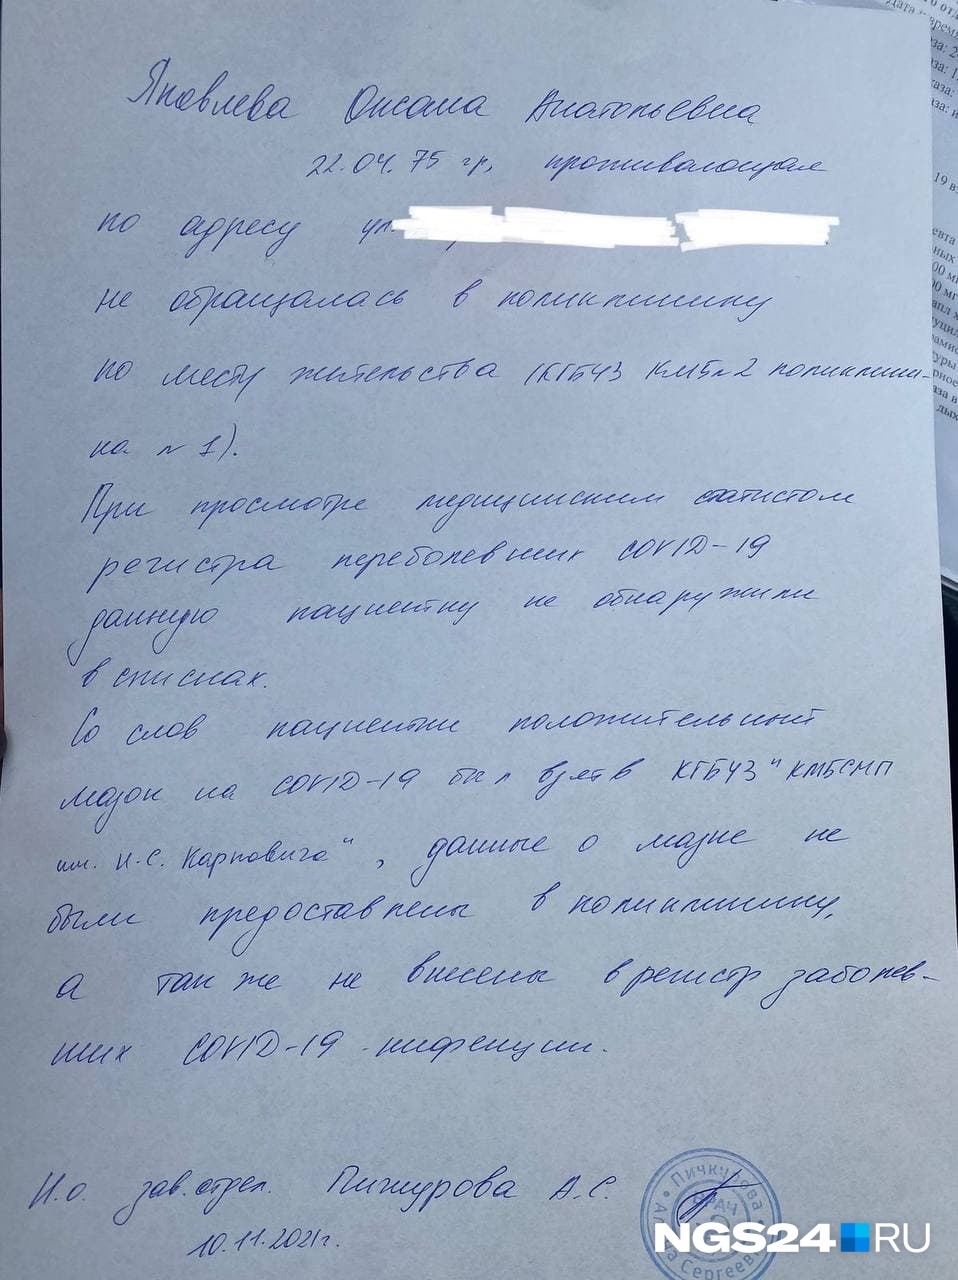 Яковлева Оксана Анатольевна
22.04.75 гр, проживающая
по адресу ул.
не обращалась в поликлинику
по месту жительства (КГБУЗ КМБ№2 поликлини-
ка № 1).
При просмотре медицинским статистом
регистра переболевших COVID-19
данную пациентку не обнаружили
в списках.
Со слов пациентки положительный
мазок на COVID-19 был взят в КГБУЗ "КМБСМП
им. Н.С. Карповича", данные о мазке не
были предоставлены в поликлинику,
а так же не внесены в регистр заболев-
ших COVID-19 инфекции.
И.о. зав.отдел. Пичкурова А.С.
10.11.2021г.
Пичкурова
ВРАЧ
Сергеевна
NGS24.RU